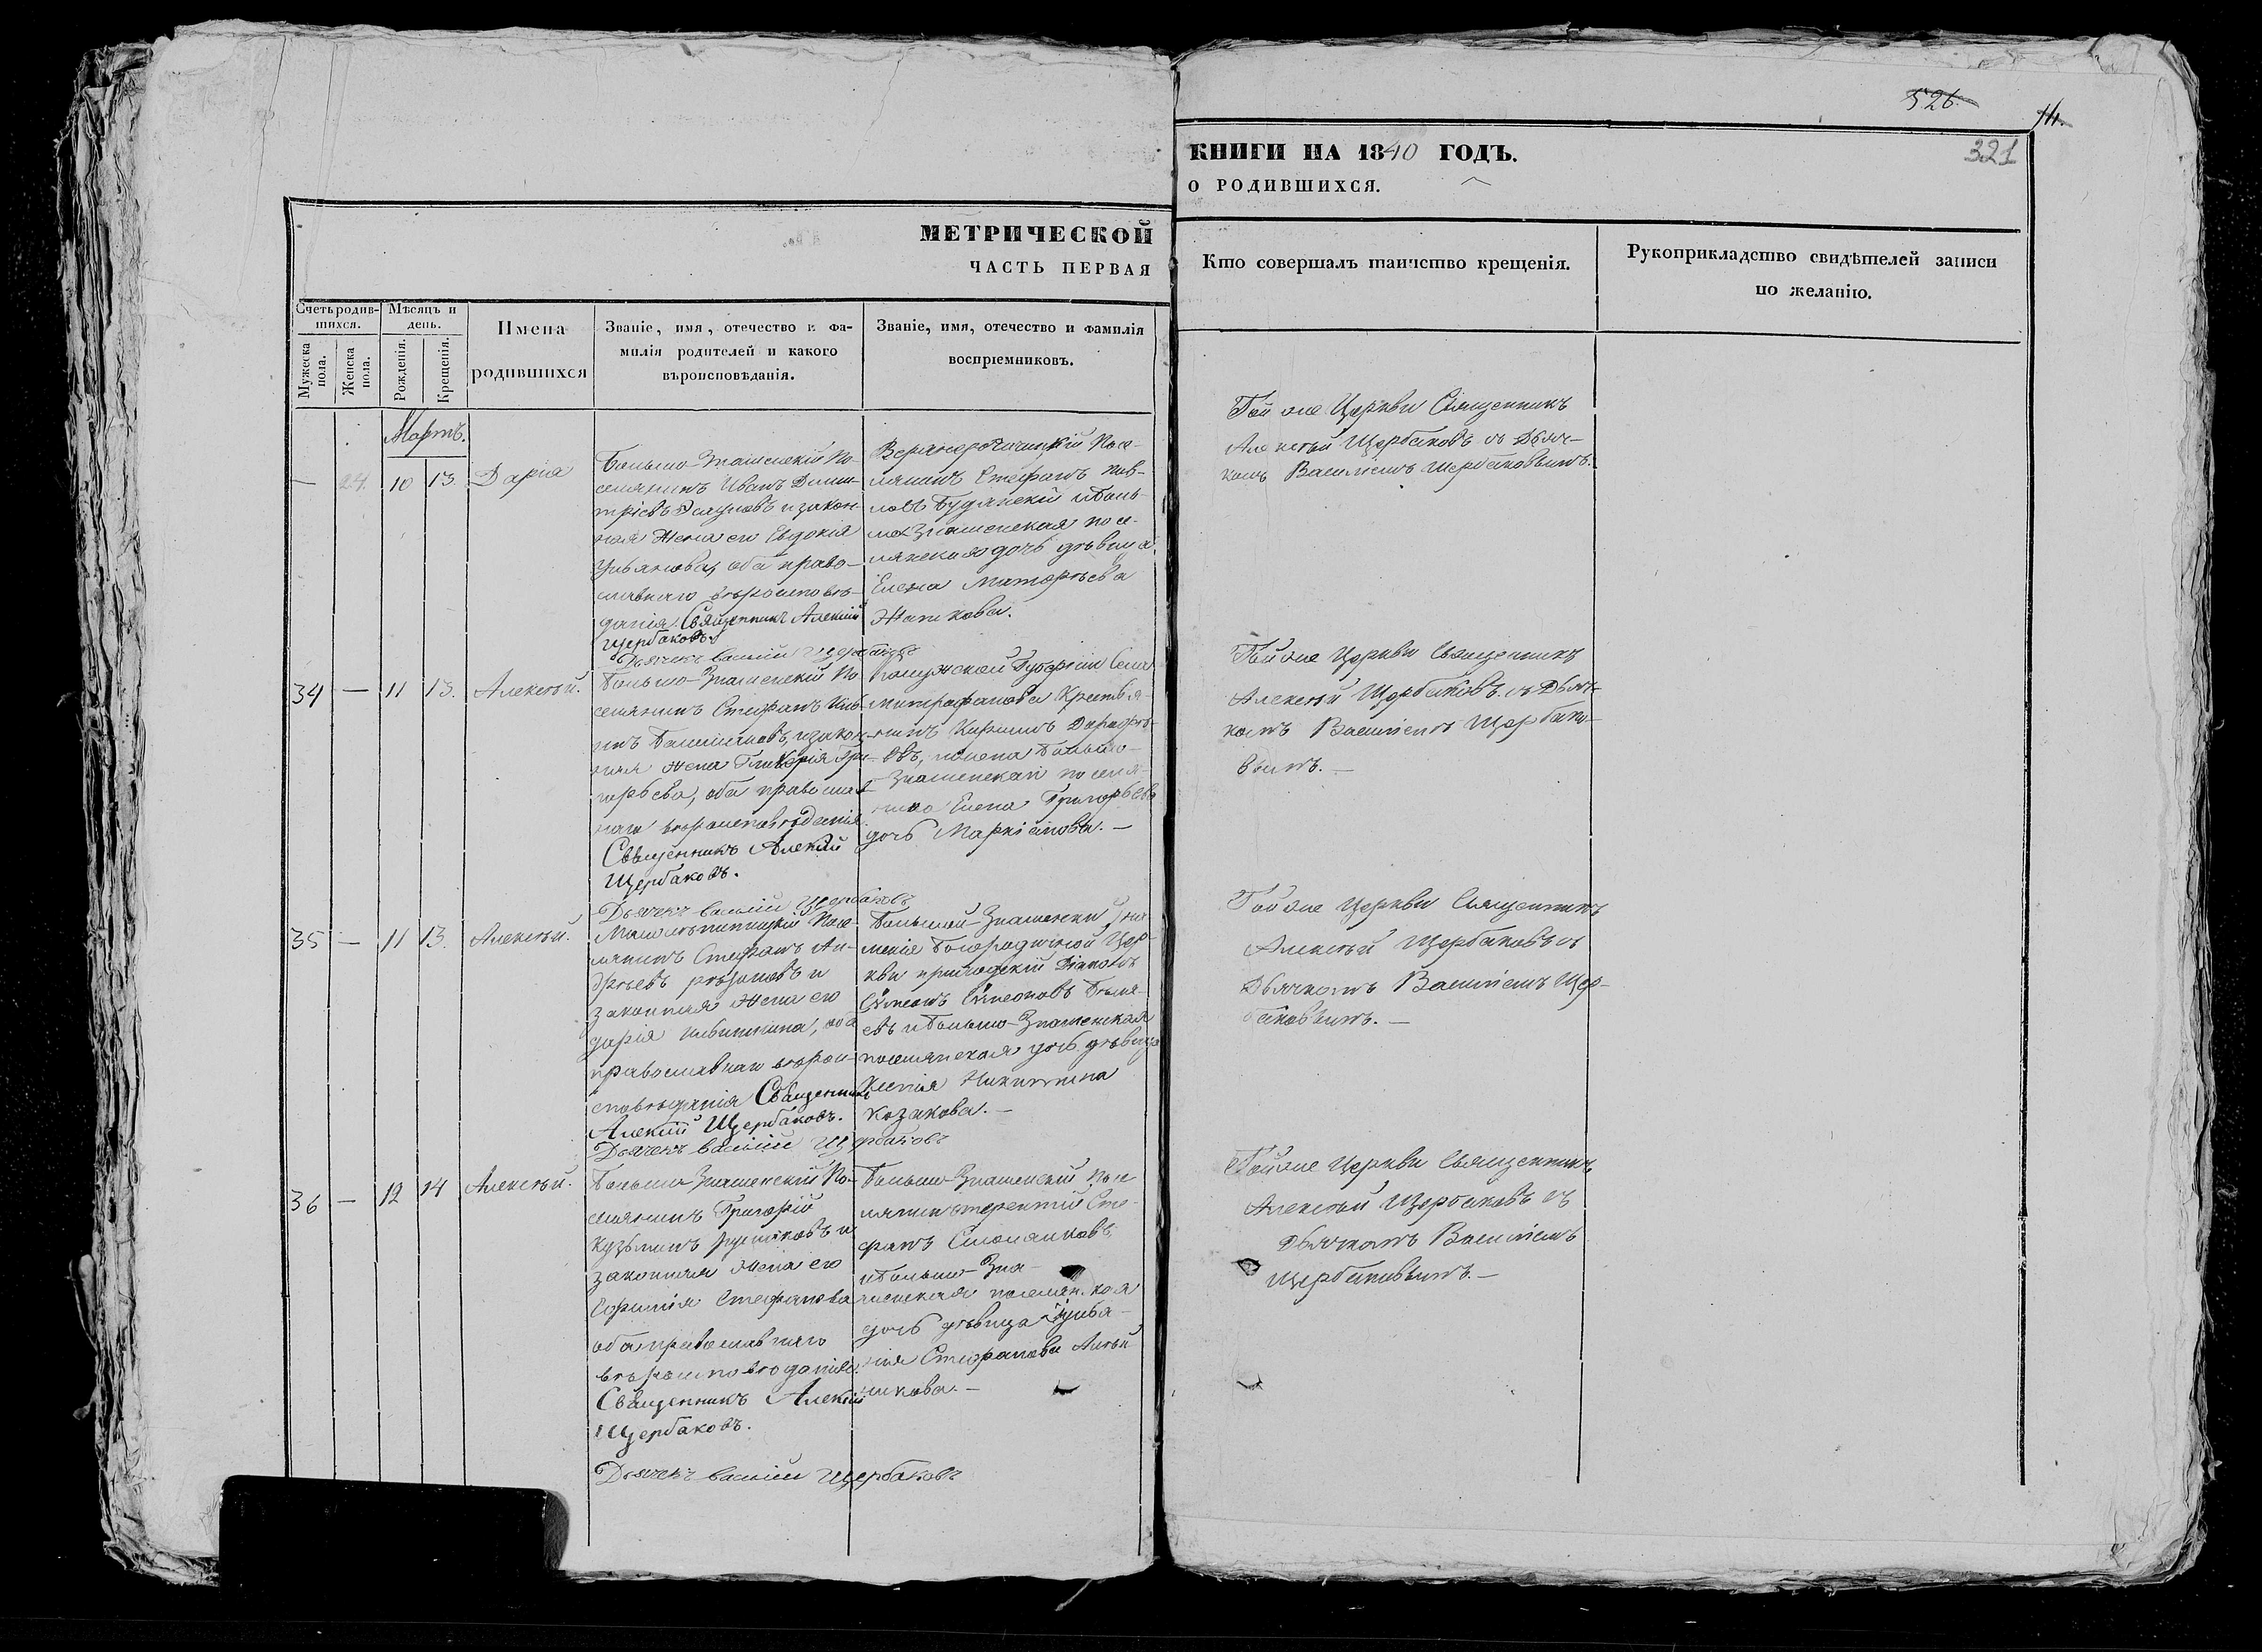 526.
14.
321
МЕТРИЧЕСКОЙ
КНИГИ НА 1840 ГОДЪ.
ЧАСТЬ ПЕРВАЯ
О РОДИВШИХСЯ.
Счетъ родив-
шихся.
Мужеска пола.
Женска пола.
Мѣсяцъ и
день.
Рожденія.
Крещенія.
Имена
родившихся
Званіе, имя, отечество и фа-
милія родителей и какого
вѣроисповѣданія.
Званіе, имя, отечество и фамилія
воспріемниковъ.
Кто совершалъ таинство крещенія.
Рукоприкладство свидѣтелей записи
по желанію.
Мартъ.
— 24. 10 13 Дарія
Большо-Знаменскій По-
селянинъ Иванъ Дими-
тріевъ и закон-
ная Жена его Евдокія
Ульянова, оба право-
славнаго вѣроисповѣ-
данія. Священникъ Алексій
Щербаковъ.
Дьячекъ Василій Щербаковъ
Посе-
лянинъ Стефанъ Пав-
ловъ и Боль-
мо Знаменская посе-
лянская дочь дѣвица
Елена
Жаткова.
Той же Церкви Священникъ
Алексѣй Щербаковъ съ Дьяч-
комъ Василіемъ Щербаковымъ.
34 — 11 13. Алексѣй.
Большо-Знаменскій По-
селянинъ Стефанъ
закон-
ная жена Гликерія Гри-
горьева, оба православ-
наго вѣроисповѣданія.
Священникъ Алексій
Щербаковъ.
Дьячекъ Василій Щербаковъ
Калужской Губерніи Села
Митрофанова Крестья-
нинъ Дорофѣ-
евъ, Большо-
Знаменская поселя-
нка Елена Григорьева
дочь Маркіанова. —
Той же Церкви Священникъ
Алексѣй Щербаковъ съ Дьяч-
комъ Василіемъ Щербако-
вымъ. —
35 — 11 13. Алексѣй.
Посе-
лянинъ Стефанъ Ан-
дреевъ и
законная жена его
Дарія Никитина, оба
православнаго вѣрои-
сповѣданія Священникъ
Алексій Щербаковъ.
Дьячекъ Василій Щербаковъ
Большой-Знаменки
Богородичной Цер-
кви приходскій Діаконъ
Сѵмеонъ Сѵмеоновъ
и Большо-Знаменская
поселянская дочь дѣвица
Ксенія Никитина
Козакова. —
Той же Церкви Священникъ
Алексѣй Щербаковъ съ
Дьячкомъ Василіемъ Щер-
баковымъ. —
36 — 12 14 Алексѣй.
Большо-Знаменскій По-
селянинъ Григорій
Кузьминъ и
законная жена его
Ефимія Стефанова
оба православнаго
вѣроисповѣданія.
Священникъ Алексій
Щербаковъ.
Дьячекъ Василій Щербаковъ
Большо-Знаменскій Посе
лянинъ Терентій Сте-
фанъ
и Большо-Зна-
менская поселянская
дочь дѣвица
Стефанова
никова. —
Той же Церкви Священникъ
Алексѣй Щербаковъ съ
Дьячкомъ Василіемъ
Щербаковымъ. —